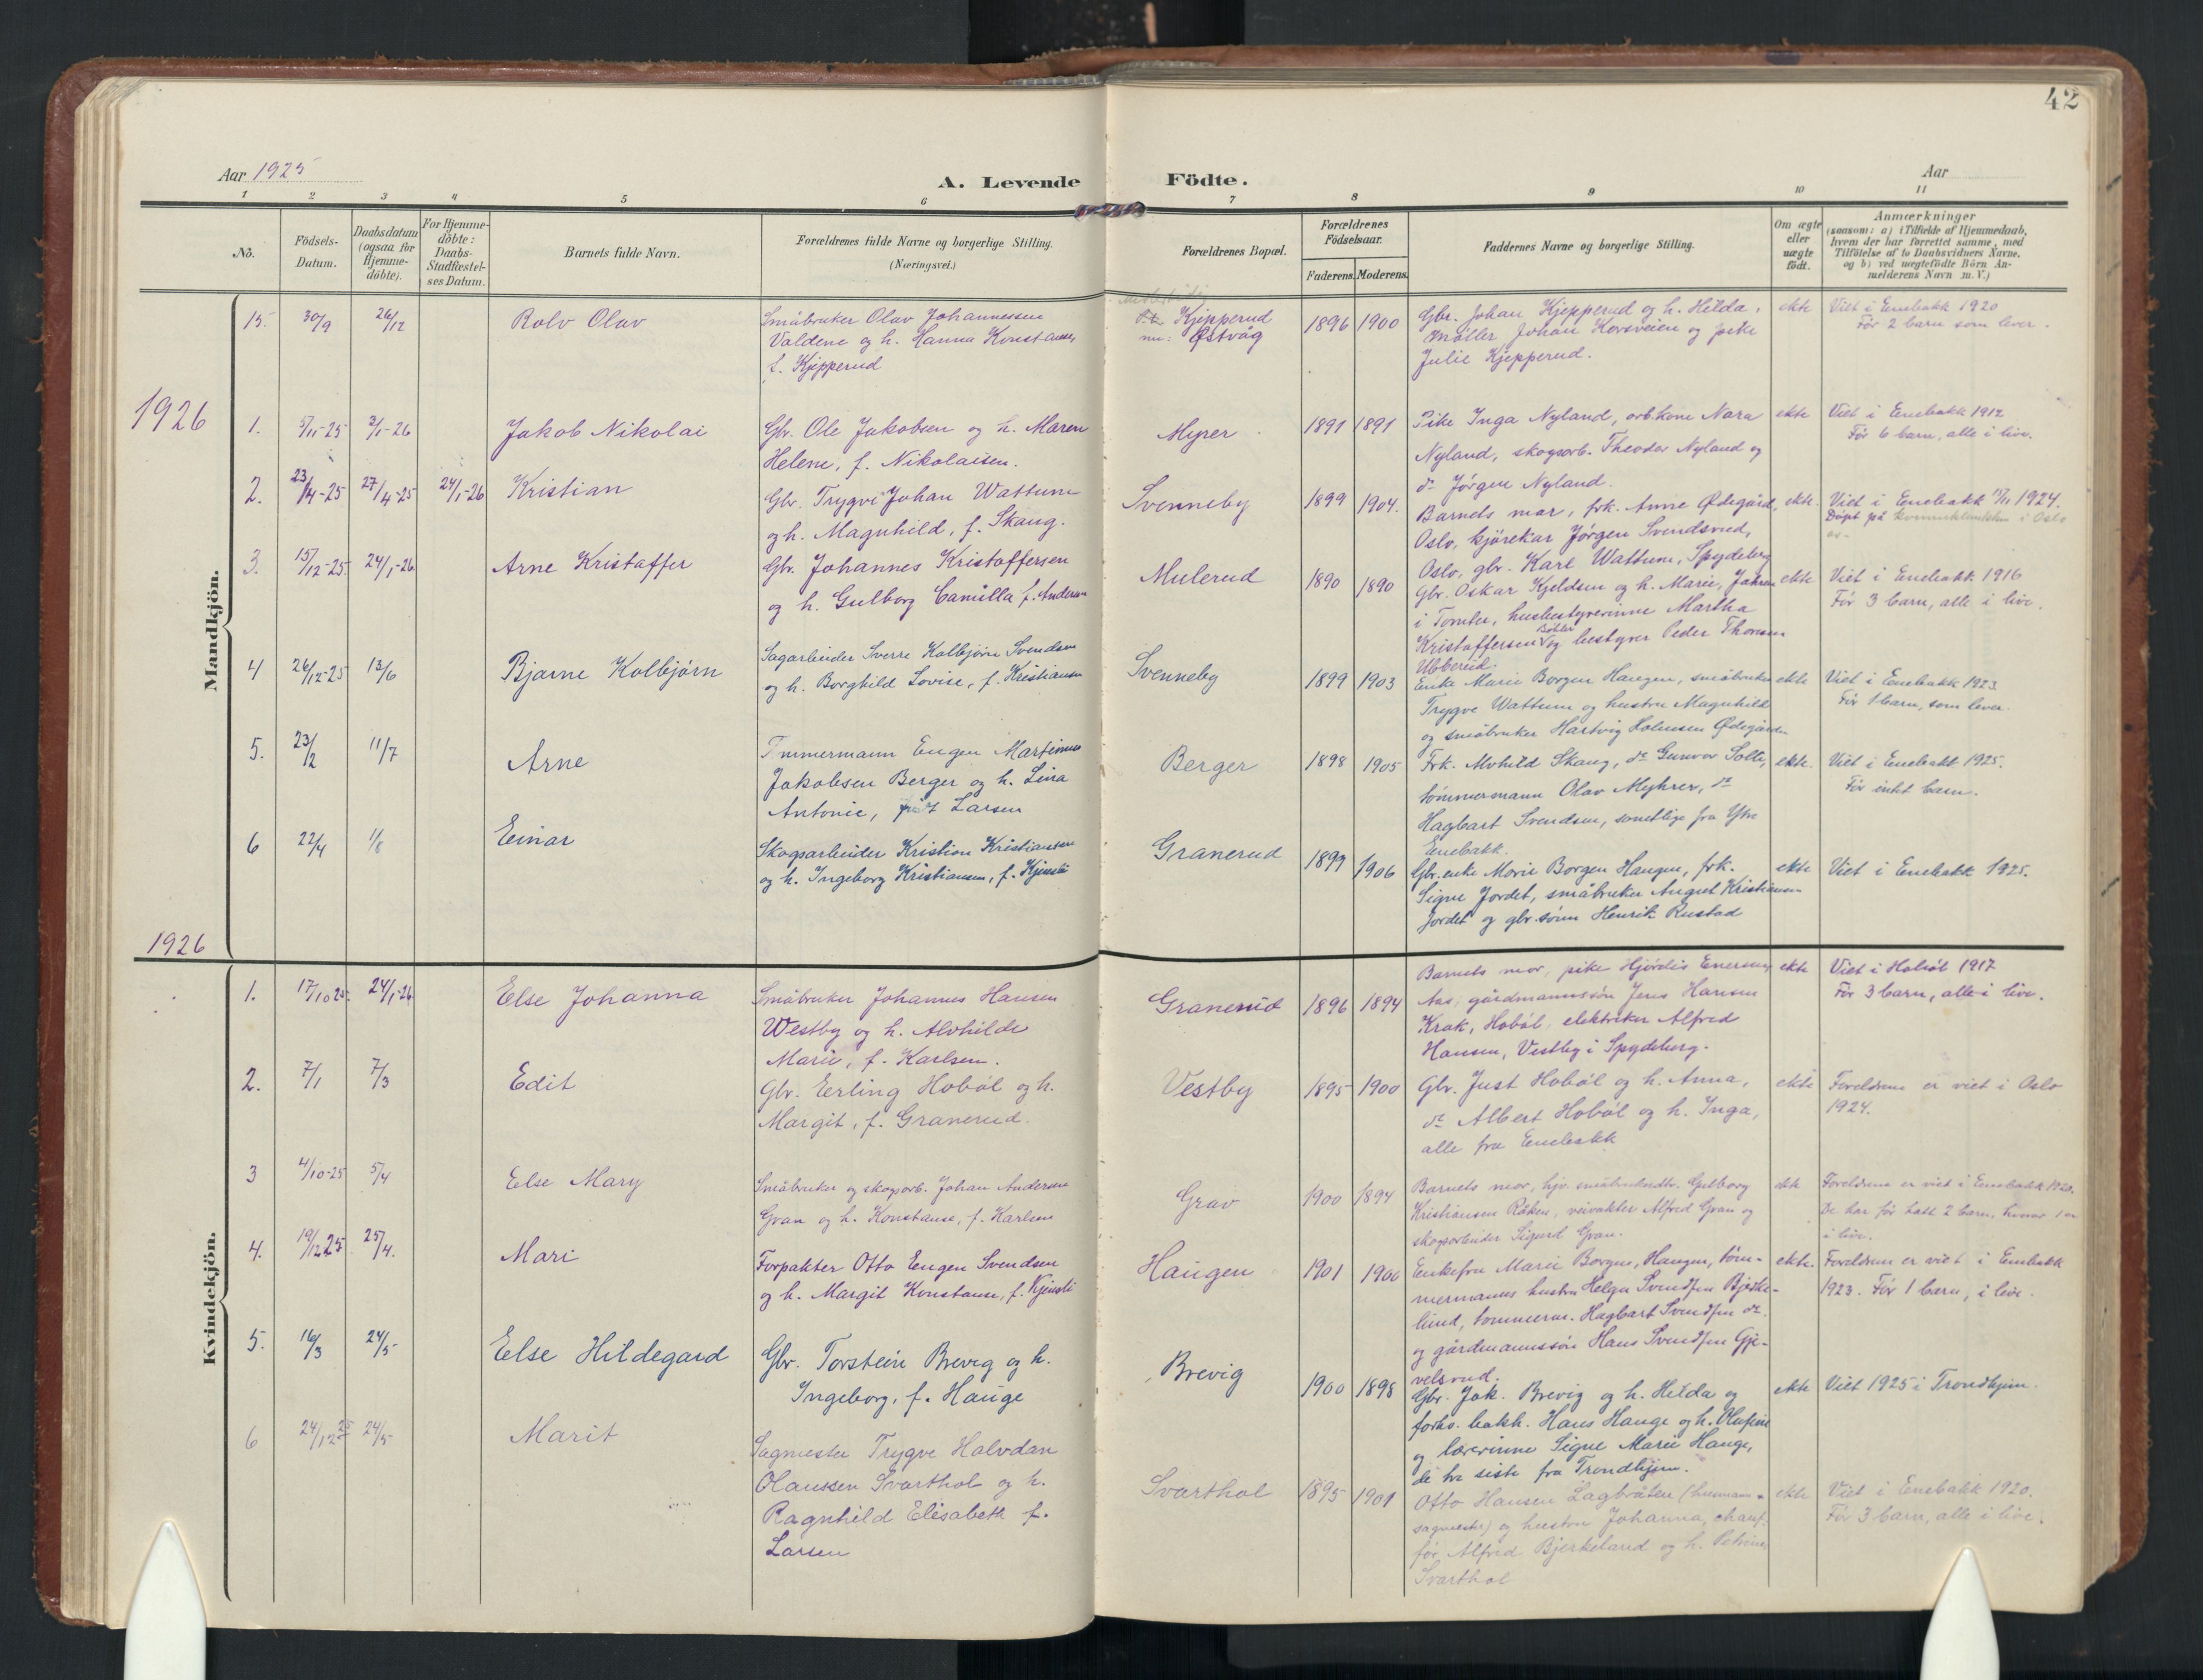 42
Aar 1925
A. Levende Födte.
Aar
1 2 3 4 5 6 7 8 9 10 11
No.
Födsels-
Datum.
Daabsdatum
(ogsaa for
Hjemme-
döbte).
For Hjemme-
döbte:
Daabs-
Stadfæstel-
ses Datum.
Barnets fulde Navn.
Forældrenes fulde Navne og borgerlige Stilling.
(Næringsvei.)
Forældrenes Bopæl.
Forældrenes
Födselsaar.
Faderens. Moderens.
Faddernes Navne og borgerlige Stilling.
Om ægte
eller
uægte
födt.
Anmærkninger
(saasom: a) i Tilfælde af Hjemmedaab,
hvem der har forrettet samme, med
Tilföielse af to Daabsvidners Navne,
og b) ved uægtefödte Börn An-
melderens Navn m. V.)
Mandkjön.
15. 30/9 26/12
Rolv Olav
Småbruker Olav Johannessen
Valdene og h. Hanna Konstanse,
f. Kjepperud
Kjepperud
nu: Østvåg
1896 1900
Gbr. Johan Kjepperud og h. Hilda,
møller Johan Korsveien og pike
Julie Kjepperud.
ekte
Viet i Enebakk 1920
Før 2 barn som lever.
1926
1. 5/11-25 3/1-26
Jakob Nikolai
Gbr. Ole Jakobsen og h. Maren
Helene, f. Nikolaisen.
Myrer
1891 1891
Pike Inga Nyland, arb.kone Nara
Nyland, skogsarb. Theodor Nyland og
do Jörgen Nyland.
ekte
Viet i Enebakk 1912
Før 6 barn, alle i live.
2. 23/4-25 27/4-25 24/1-26
Kristian
Gbr. Trygve Johan Wattum
og h. Magnhild, f. Skaug.
Svenneby
1899 1904.
Barnets mor, frk. Anne Ødegård,
Oslo, kjørekar Jörgen Svendsrud,
Oslo, gbr. Karl Wattum, Spydeberg
ekte.
Viet i Enebakk 15/11 1924.
Døpt på kvinneklinikken i Oslo
3. 15/12-25 24/1-26
Arne Kristoffer
Gbr. Johannes Kristoffersen
og h. Gulborg Camilla f. Andersen
Mulerud
1890 1890
Gbr. Oskar Kjeldsen og h. Marie,
i Tomter, husbestyrerinne Martha
Kristoffersen Bøhler og bestyrer Peder Thoresen
Ubberud.
ekte
Viet i Enebakk 1916
Før 3 barn, alle i live.
4 26/12-25 13/6
Bjarne Kolbjørn
Sagarbeider Sverre Kolbjørn Svendsen
og h. Borghild Lovise, f. Kristiansen
Svenneby
1899 1903
Enke Marie Borgen Haugen, småbruker
Trygve Wattum og hustru Magnhild
og småbruker Hartvig Holmsen Ødegården
ekte
Viet i Enebakk 1923
Før 1 barn, som lever.
5. 23/2 11/7
Arne
Tømmermann Eugen Martinius
Jakobsen Berger og h. Lina
Antonie, født Larsen
Berger
1898 1905
Frk. Alvhild Skaug, do Gunvor Solli,
tømmermann Olav Myhrer, do
Hagbart Svendsen, samtlige fra Ytre
Enebakk.
ekte.
Viet i Enebakk 1925.
Før intet barn.
6 22/4 1/8
Einar
Skogsarbeider Kristian Kristiansen
og h. Ingeborg Kristiansen, f. Kjensli
Granerud
1899 1906
Gbr.enke Marie Borgen Haugen, frk.
Signe Jordet, småbruker August Kristiansen
Jordet og gbr.sønn Henrik Rustad
ekte
Viet i Enebakk 1925.
1926
Kvindekjön.
1. 17/10 25. 24/1-26
Else Johanna
Småbruker Johannes Hansen
Westby og h. Alvhilde
Marie, f. Karlsen.
Granerud
1896 1894
Barnets mor, pike Hjördis Enersen,
Aas, gårdmannssön Jens Hansen
Krak, Hobøl, elektriker Alfred
Hansen, Vestby i Spydeberg.
ekte
Viet i Hobøl 1917
Før 3 barn, alle i live.
2. 7/1 7/3
Edit
Gbr. Erling Hobøl og h.
Margit, f. Granerud.
Vestby
1895 1900
Gbr. Just Hobøl og h. Anna,
do Albert Hobøl og h. Inga,
alle fra Enebakk
ekte
Foreldrene er viet i Oslo
1924.
3 4/10-25 5/4
Else Mary
Småbruker og skogsarb. Johan Andersen
Gran og h. Konstanse, f. Karlsen
Grav
1900 1894
Barnets mor, hjv. småbrukerdtr. Gulborg
Kristiansen Råken, veivokter Alfred Gran og
skogsarbeider Sigurd Gran.
ekte
Foreldrene er viet i Enebakk 1920.
De har før hatt 2 barn, hvorav 1 er
i live.
4. 19/12 25 25/4.
Mari
Forpakter Otto Eugen Svendsen
og h. Margit Konstanse, f. Kjensli
Haugen
1901 1906
Enkefru Marie Borgen, Haugen, tøm-
mermanns hustru Helga Svendsen Bjerke-
lund, tømmerm. Hagbart Svendsen do.
og gårdmannssön Hans Svendsen Gje-
velsrud.
ekte.
Foreldrene er viet i Enebakk
1923. Før 1 barn, i live.
5. 16/3 24/5
Else Hildegard
Gbr. Torstein Brevig og h.
Ingeborg, f. Hauge
Brevig
1900 1898
Gbr. Jak. Brevig og h. Hilda og
forhv. bakk. Hans Hauge og h. Olufine
og lærerinne Signe Marie Hauge,
de tre siste fra Trondhjem.
ekte
Viet 1925 i Trondhjem.
6 24/12 25 24/5
Marit
Sagmester Trygve Halvdan
Olaussen Svarthol og h.
Ragnhild Elisabeth f.
Larsen
Svarthol
1895 1901
Otto Hansen Lagbråten (husmann
sagmester) og hustru Johanna, chauf-
før Alfred Bjerkeland og h. Petrine
Svarthol
ekte
Viet i Enebakk 1920.
Før 3 barn, alle i live.